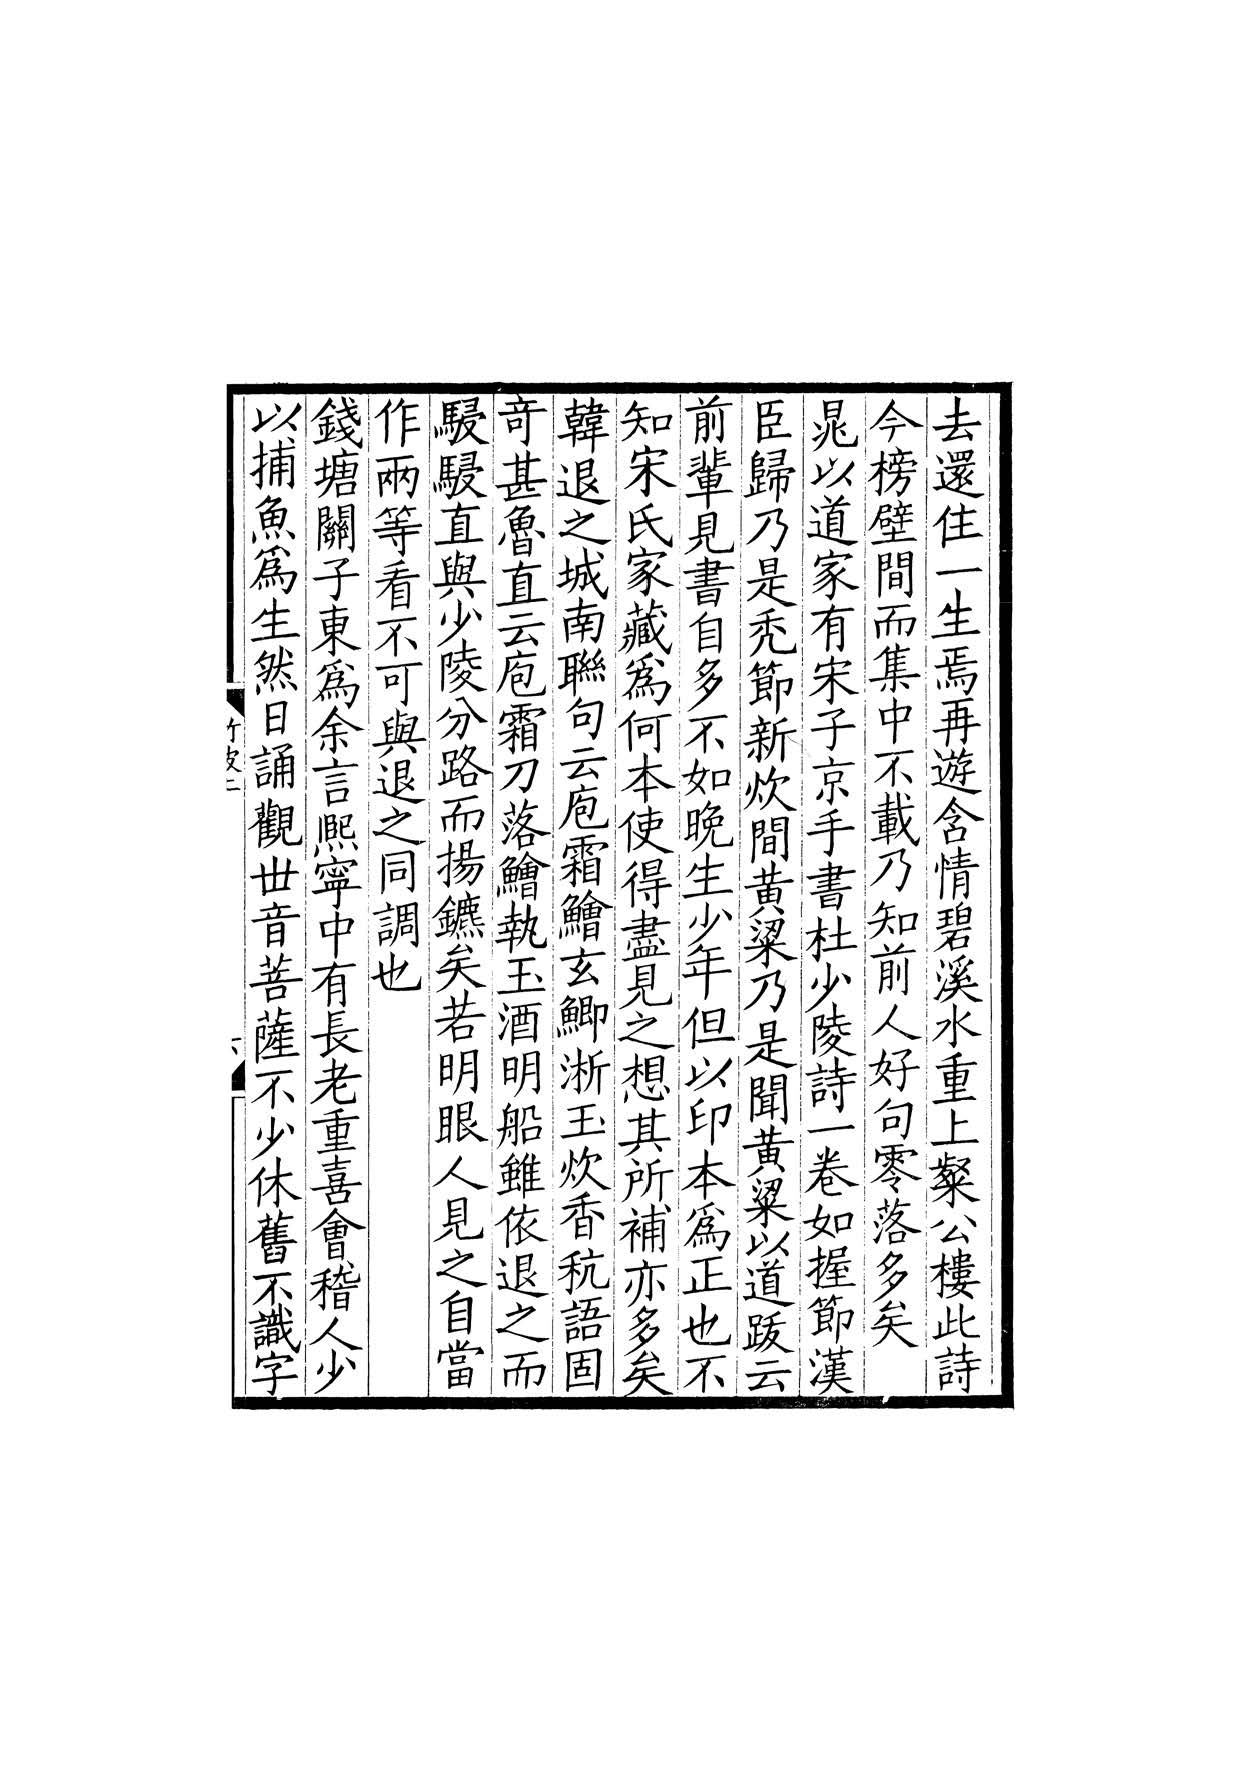 去還住一生焉再遊含情碧溪水重上粲公樓此詩
今榜壁間而集中不載乃知前人好句零落多矣
晁以道家有宋子京手書杜少陵詩一卷如握節漢
臣歸乃是秃節新炊間黃粱乃是聞黃粱以道跋云
前輩見書自多不如晚生少年但以印本爲正也不
知宋氏家藏爲何本使得盡見之想其所補亦多矣
韓退之城南聯句云庖霜鱠玄鯽淅玉炊香秔語固
奇甚魯直云庖霜刀落鱠執玉酒明船雖依退之而
駸駸直與少陵分路而揚鑣矣若明眼人見之自當
作兩等看不可與退之同調也
錢塘關子東爲余言熙寧中有長老重喜會稽人少
以捕魚爲生然日誦觀世音菩薩不少休舊不識字
竹坡二
六